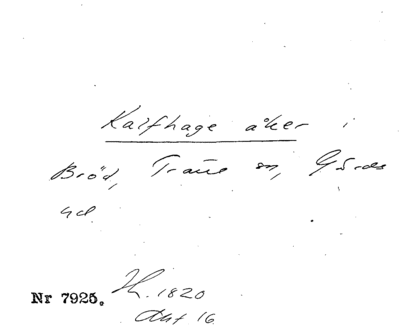 Kalfhage åker i
Bröd, Träne sn, Gärds
hd
Nr 7925. H. 1820
Akt 16